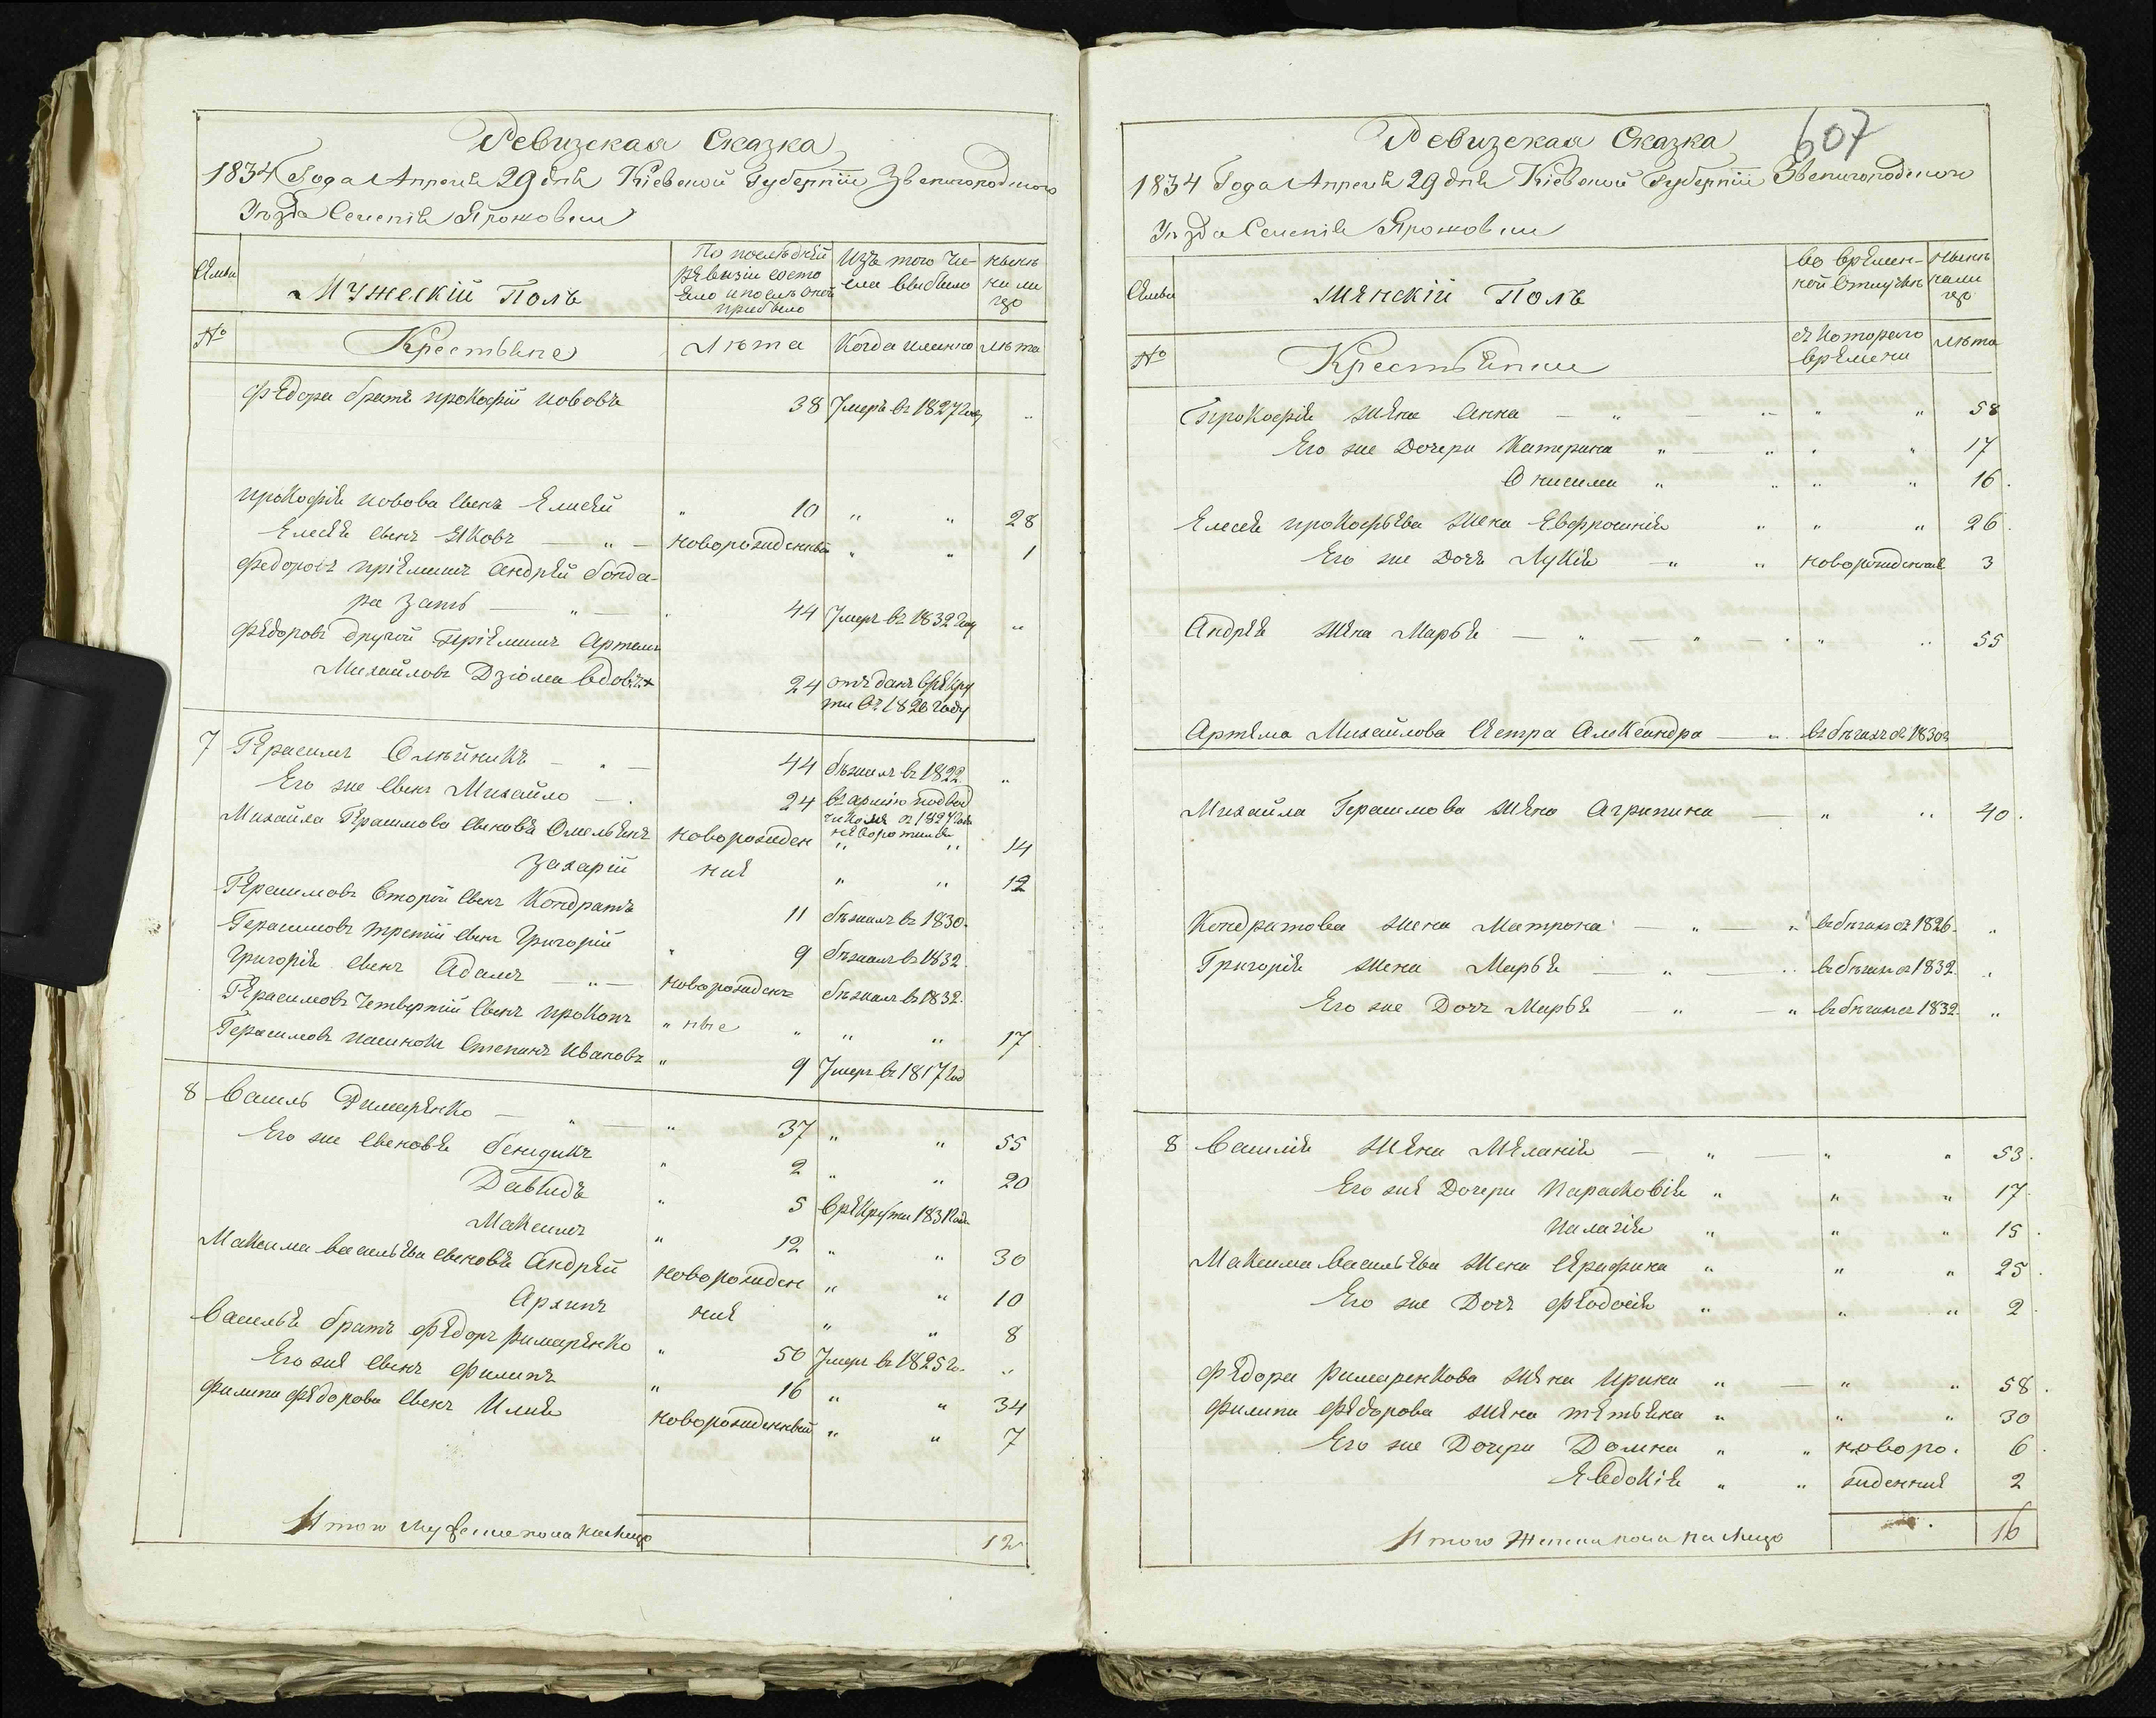 Ревизская Сказка
1834 Года Апреля 29 дня Кіевской Губерніи Звенигородского
Уѣзда Селенія
Семьи
Мужескій Полъ
По послѣдней ревизіи состояло и послѣ оной прибыло
Изъ того числа выбыло
нынѣ на лицо
№
Крестьяне
Лѣта
Когда именно
лѣта
Федора братъ прокофій 38 Умеръ въ 1827 году „
прокофія сынъ Елисей „ 10 „ „ 28
Елисея сынъ Яковъ — „ — новорожденный „ „ 1
Федоровъ пріемышъ андрѣй бонда-
ра зять — „ — 44 Умеръ въ 1832 году „
Федоровъ другой пріемышъ Артемъ
Михайловъ Дзюма 24 отъданъ врекру
ты въ 1826 году
7 Герасимъ Олѣйникъ — „ — 44 бѣжалъ въ 1822. „
Его же сынъ Михайло — 24 въ армію
1827
Михайла Герасимова сыновья Омельянъ новорожден „ „ 14
Захарій ные „ „ 12
Герасимовъ Второй сынъ Кондратъ 11 бѣжалъ въ 1830.
Герасимовъ третій сынъ Григорій „ 9 бѣжалъ въ 1832
Григорія сынъ Адамъ — „ — новорожден бѣжалъ въ 1832.
Герасимовъ четвертій сынъ прокопъ „ ные „ „ „ 17
Герасимовъ Степанъ Ивановъ „ 9 Умеръ въ 1817 год
8 Василь Римаренко — „ — „ 37 „ „ 55
Его же сыновья бенедикъ „ 2 „ „ 20
Давыдъ „ 5 врекруты 1831 года
Максимъ „ 12 „ „ 30
Максима васильева сыновья Андрѣй новорожден „ „ 10
Архипъ ные „ „ 8
Василья братъ федоръ римаренко „ 50 Умеръ въ 1825 го. „
Его же сынъ филипъ „ 16 „ „ 34
филипа федорова сынъ Илія новорожденный „ „ 7
Итого мужеска пола на лицо 12
607
Ревизская Сказка
1834 Года Апреля 29 дня Кіевской Губерніи Звенигородского
Уѣзда Селенія
Семьи
Женскій Полъ
во времен-
ной отлучкѣ
нынѣ
нали
цо
№
Крестьянки
съ которого
времени
лѣта
прокофія жена Анна — „ — „ „ „ 58
Его же Дочери Катерина „ — „ „ „ 17
Онисима „ „ „ „ 16.
Елисея прокофьева жена Евфросинія „ „ „ 26.
Его же Дочь Лукія „ „ новорожденная 3
Андрея жена Марья — „ — „ — „ „ 55
Артема Михайлова сестра Александра — „ въ бѣгахъ съ 1830г.
Михайла Герасимова жена Агрипина — „ „ 40.
Кондратова жена Матрона — „ — „ въ бѣгахъ съ 1826. „
Григорія жена Марья — „ — „ въ бѣгахъ съ 1832. „
Его же Дочь Марья — „ — „ въ бѣгахъ съ 1832. „
8 Василія жена Меланія — „ — „ „ 53.
Его же Дочери Парасковія „ „ „ 17
Палагія „ „ „ 15.
Максима васильева жена Серафина „ „ „ 25
Его же Дочь Феодосія „ „ „ 2
федора римаренкова жена Ирина „ — „ „ 58.
филипа федорова жена тетьяна „ „ „ 30
Его же Дочери Домна „ „ новоро. 6.
Евдокія „ „ жденные 2
Итого женска пола на лицо 16